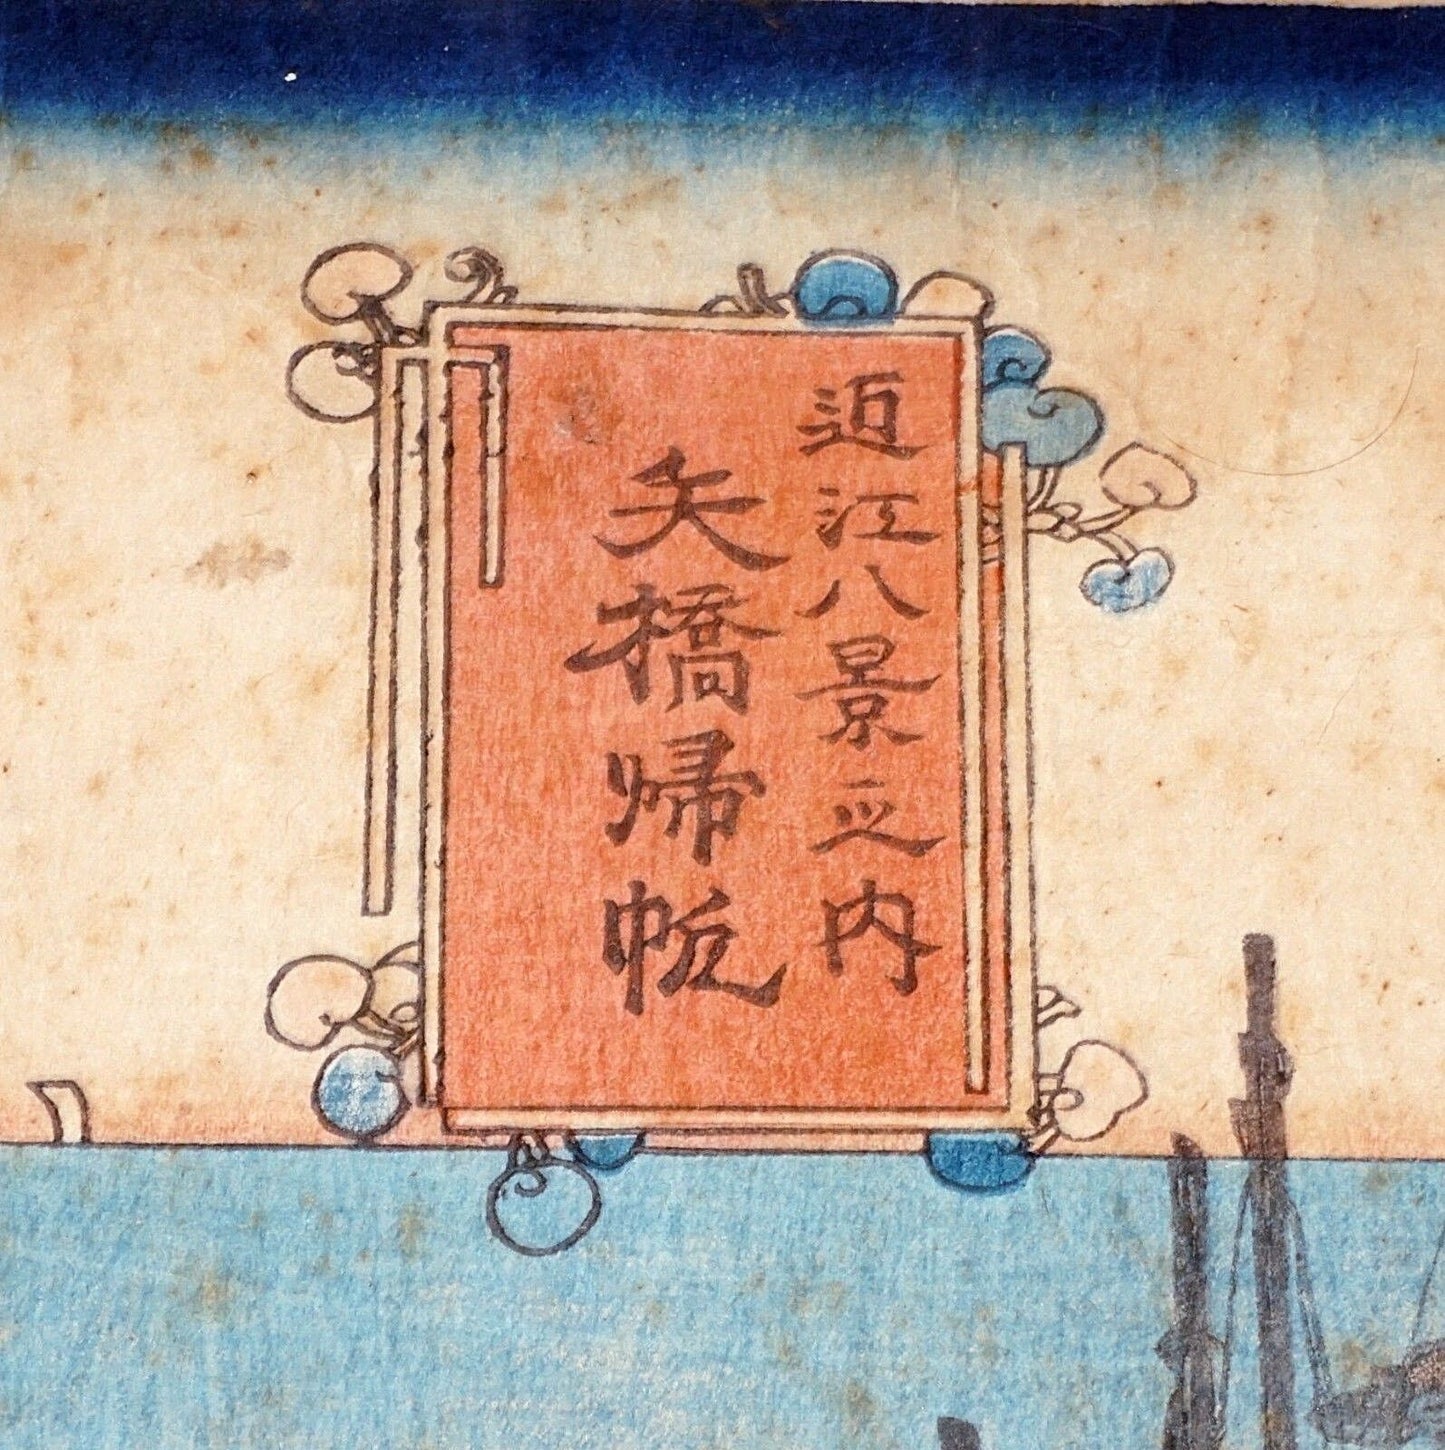 近江八景之内
矢橋帰帆